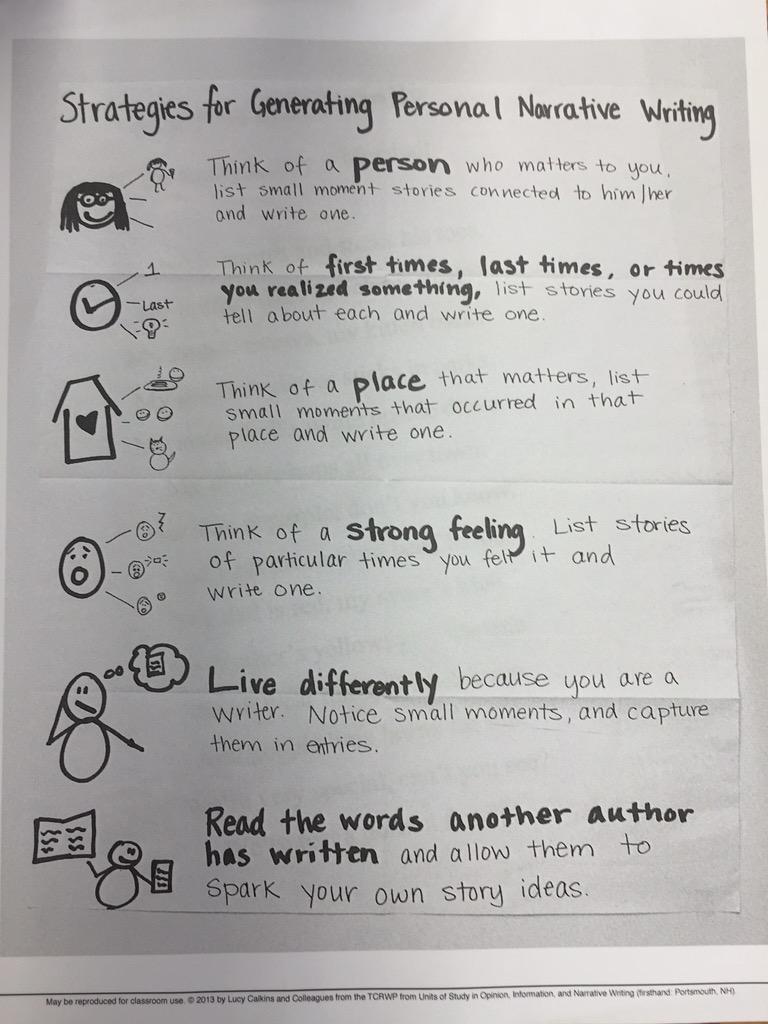 Strategies for Generating Personal Narrative Writing
Think of a person who matters to you,
list small moment stories connected to him/her
and write one.
1
Last
Think of first times, last times, or times
you realized something, list stories you could
tell about each and write one.
Think of a place that matters, list
small moments that occurred in that
place and write one.
Think of a strong feeling. List stories
of particular times you felt it and
write one.
Live differently because you are a
writer. Notice small moments, and capture
them in entries.
Read the words another author
has written and allow them to
spark your own story ideas.
May be reproduced for classroom use. © 2013 by Lucy Calkins and Colleagues from the TCRWP from Units of Study in Opinion, Information, and Narrative Writing (firsthand: Portsmouth, NH).